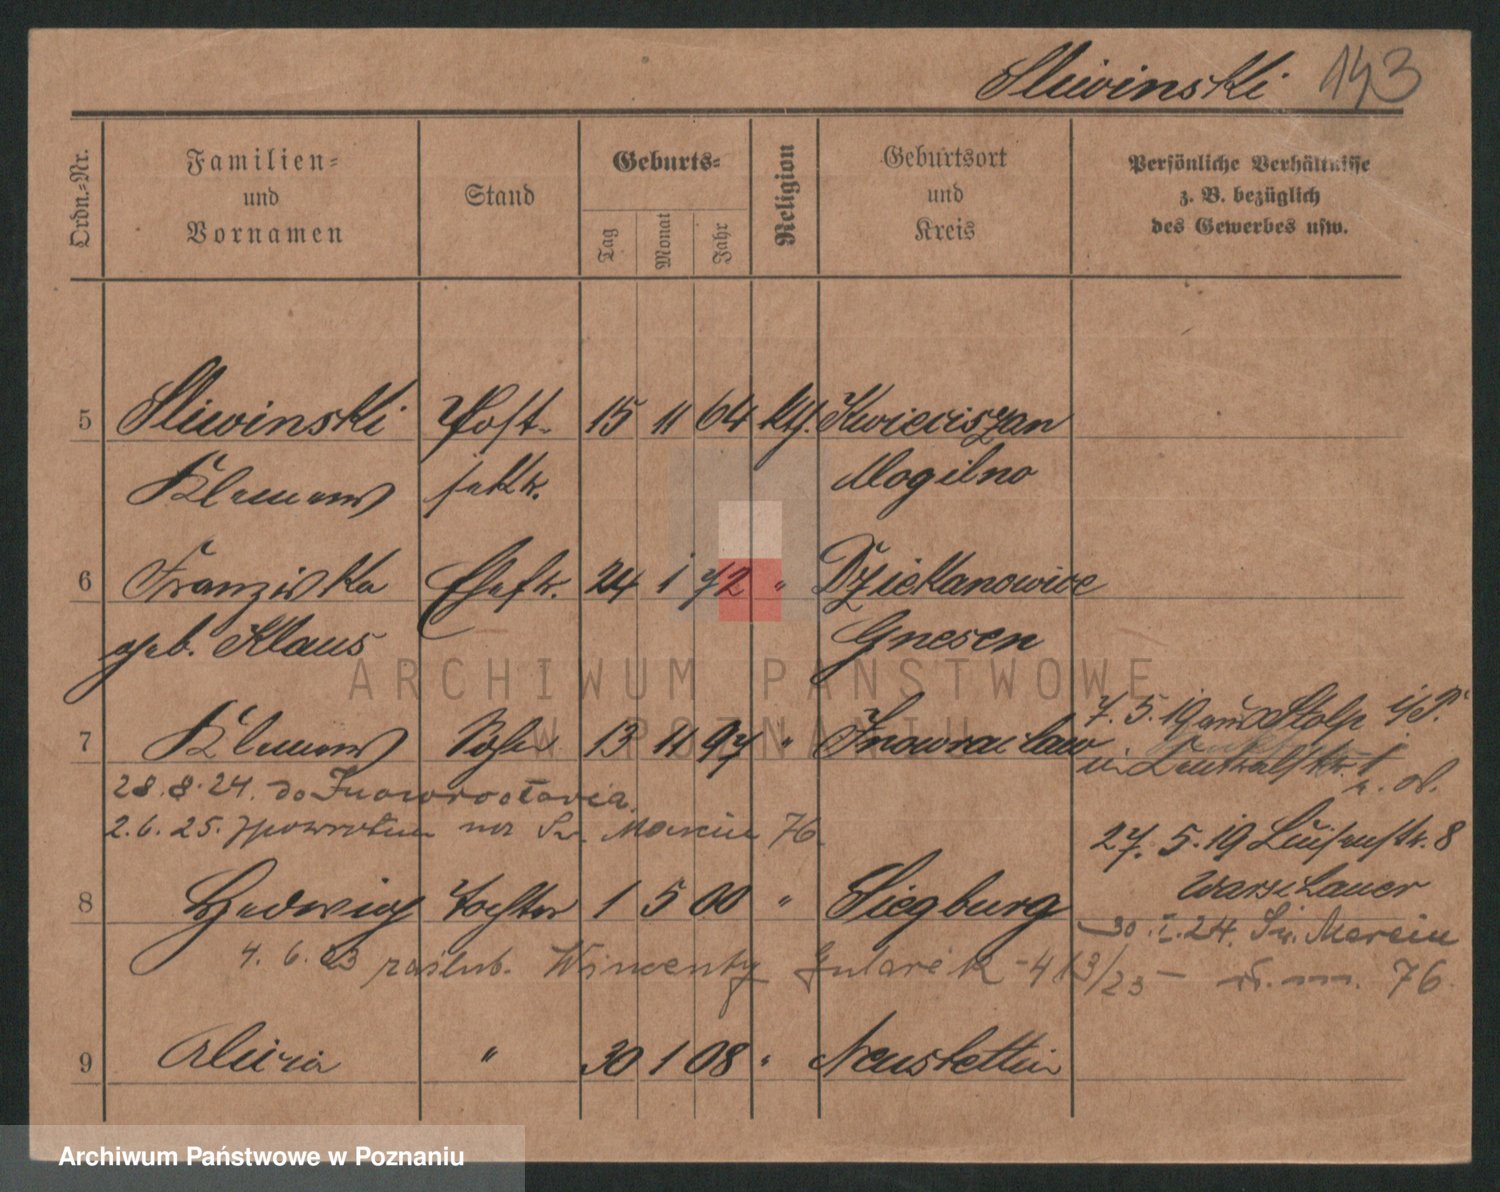 Sliwinski 143
Ordn.-Nr.
Familien-
und
Vornamen
Stand
Geburts-
Tag
Monat
Jahr
Religion
Geburtsort
und
Kreis
Persönliche Verhältnisse
z. B. bezüglich
des Gewerbes usw.
5 Sliwinski Post- 15 11 64 kth. Kwieciszan
Klemens sekr. Mogilno
6 Franziska Ehefr. 24 1 72 " Dziekanowice
geb. Klaus Gnesen
7. 5. 19 aus Stolp i/P.
7 Klemens Sohn 13 11 97 " Inowraclaw
in Centralstr. 1
28. 8. 24. do Inowrocławia.
2. 6. 25. zpowrotem na Św. Marcin 76.
27. 5. 19 Luisenstr. 8
Warschauer
8 Hedwig Tochter 1 5 00 " Siegburg
30. I. 24. Św. Marcin
76.
4. 6. 23 zaślub. Wincenty - 413/23 -
9 Aliczia " 30 1 08 " Neustettin
ARCHIWUM PAŃSTWOWE
W POZNANIU
Archiwum Państwowe w Poznaniu